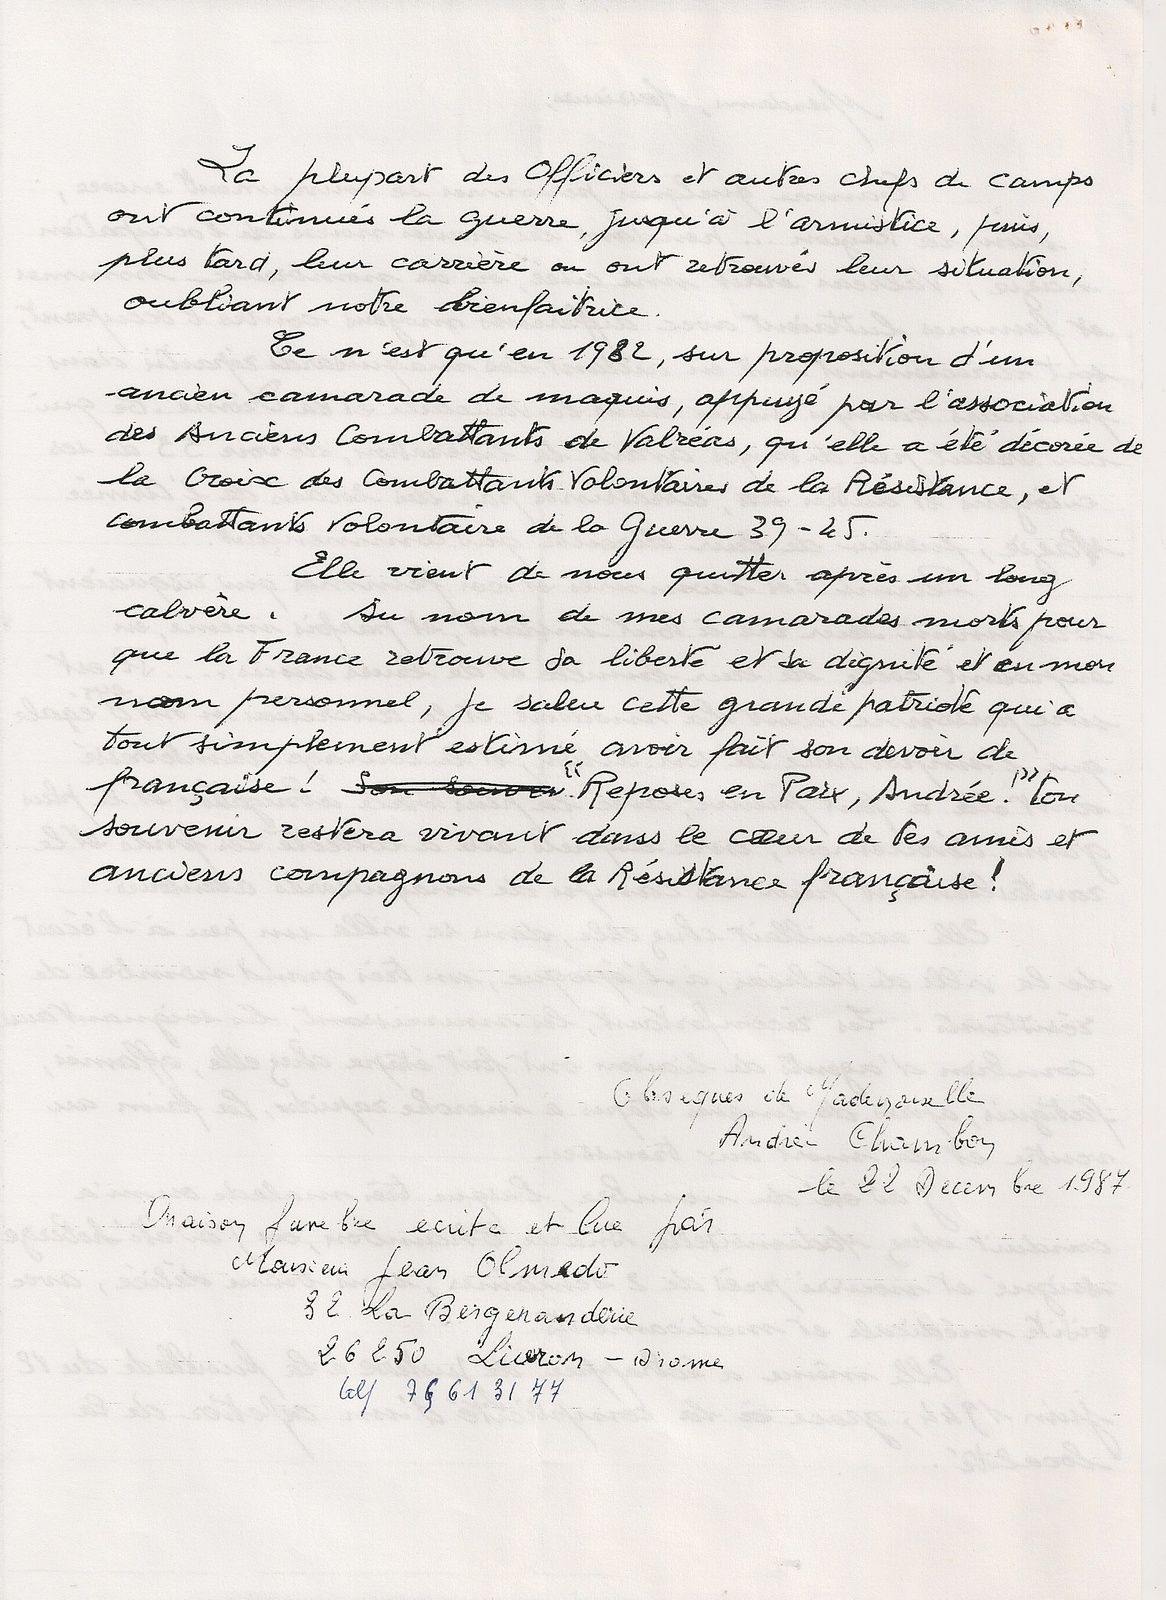 La plupart des Officiers et autres chefs de camps
ont continués la guerre, jusqu'à l'armistice, puis,
plus tard, leur carrière ou ont retrouvés leur situation,
oubliant notre bienfaitrice.
Ce n'est qu'en 1982, sur proposition d'un
ancien camarade de maquis, appuyé par l'association
des Anciens Combattants de Valréas, qu'elle a été décorée de
la Croix des Combattants Volontaires de la Résistance, et
combattants Volontaire de la Guerre 39-45.
Elle vient de nous quitter après un long
calvère. Au nom de mes camarades morts pour
que la France retrouve sa liberté et sa dignité et en mon
nom personnel, je salue cette grande patriote qui a
tout simplement estimé avoir fait son devoir de
française! Son souven "Reposes en Paix, Andrée!" Ton
souvenir restera vivant dans le cœur de tes amis et
anciens compagnons de la Résistance française!
Obsèques de Mademoiselle
Andrée Chambon
le 22 Decembre 1987
Oraison funebre ecrite et lue par
Monsieur Jean Olmedo
32 La Bergeranderie
26250 Livron - Drome
tel 75 61 31 77